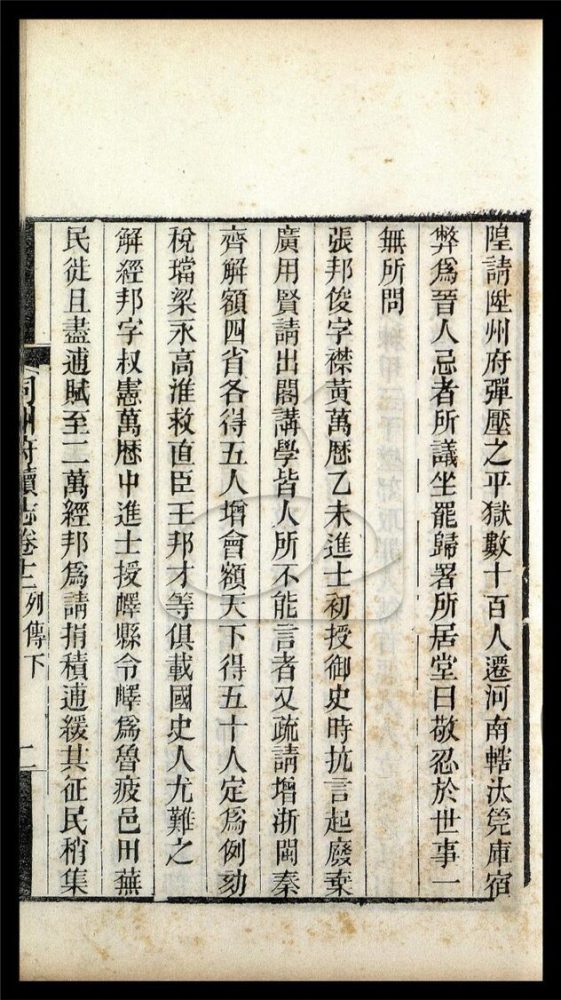 隍請陞州府彈壓之平獄數十百人遷河南轄汰筦庫宿
弊爲晉人忌者所議坐罷歸署所居堂曰敬忍於世事一
無所問
張邦俊字襟黃萬曆乙未進士初授御史時抗言起廢棄
廣用賢請出閣講學皆人所不能言者又疏請增浙閩秦
齊解額四省各得五人增會額天下得五十人定爲例劾
稅璫梁永高淮救直臣王邦才等俱載國史人尤難之
解經邦字叔憲萬曆中進士授嶧縣令嶧爲魯疲邑田蕪
民徙且盡逋賦至二萬經邦爲請捐積逋緩其征民稍集
同州府續志卷十二列傳下 二